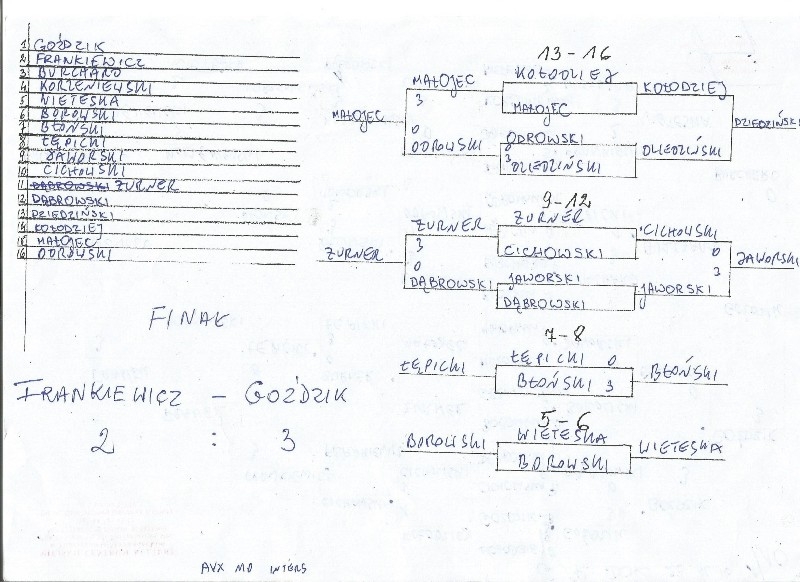 1 GOŹDZIK
2 FRANKIEWICZ
3 BURCHARD
4 KORZENIEWSKI
5 WIETESKA
6 BOROWSKI
7 BŁOŃSKI
8 ŁĘPICKI
9 JAWORSKI
10 CICHOWSKI
11 DĄBROWSKI ŻURNER
12 DĄBROWSKI
13 DZIEDZIŃSKI
14 KOŁODZIEJ
15 MAŁOJEC
16 ODROWSKI
FINAŁ
FRANKIEWICZ – GOŹDZIK
2 : 3
13-16
MAŁOJEC KOŁODZIEJ KOŁODZIEJ
3
MAŁOJEC MAŁOJEC DZIEDZIŃSKI
0 ODROWSKI
ODROWSKI 3 DZIEDZIŃSKI DZIEDZIŃSKI
9-12
ŻURNER ŻURNER CICHOWSKI
3 0
ŻURNER CICHOWSKI JAWORSKI
0 JAWORSKI 3
DĄBROWSKI DĄBROWSKI JAWORSKI
7-8
ŁĘPICKI ŁĘPICKI 0 BŁOŃSKI
BŁOŃSKI 3
5-6
BOROWSKI WIETESKA WIETESKA
BOROWSKI